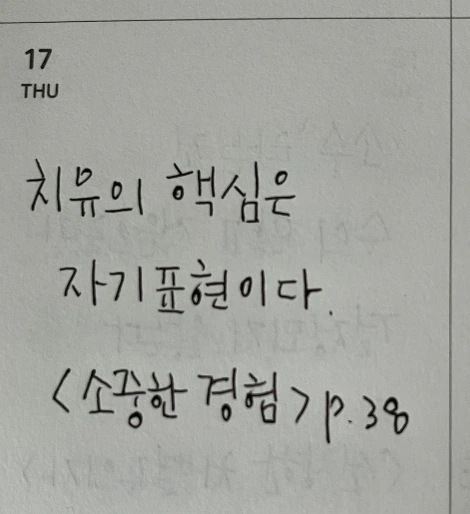 17
THU
치유의 핵심은
자기표현이다.
<소중한 경험> p.38